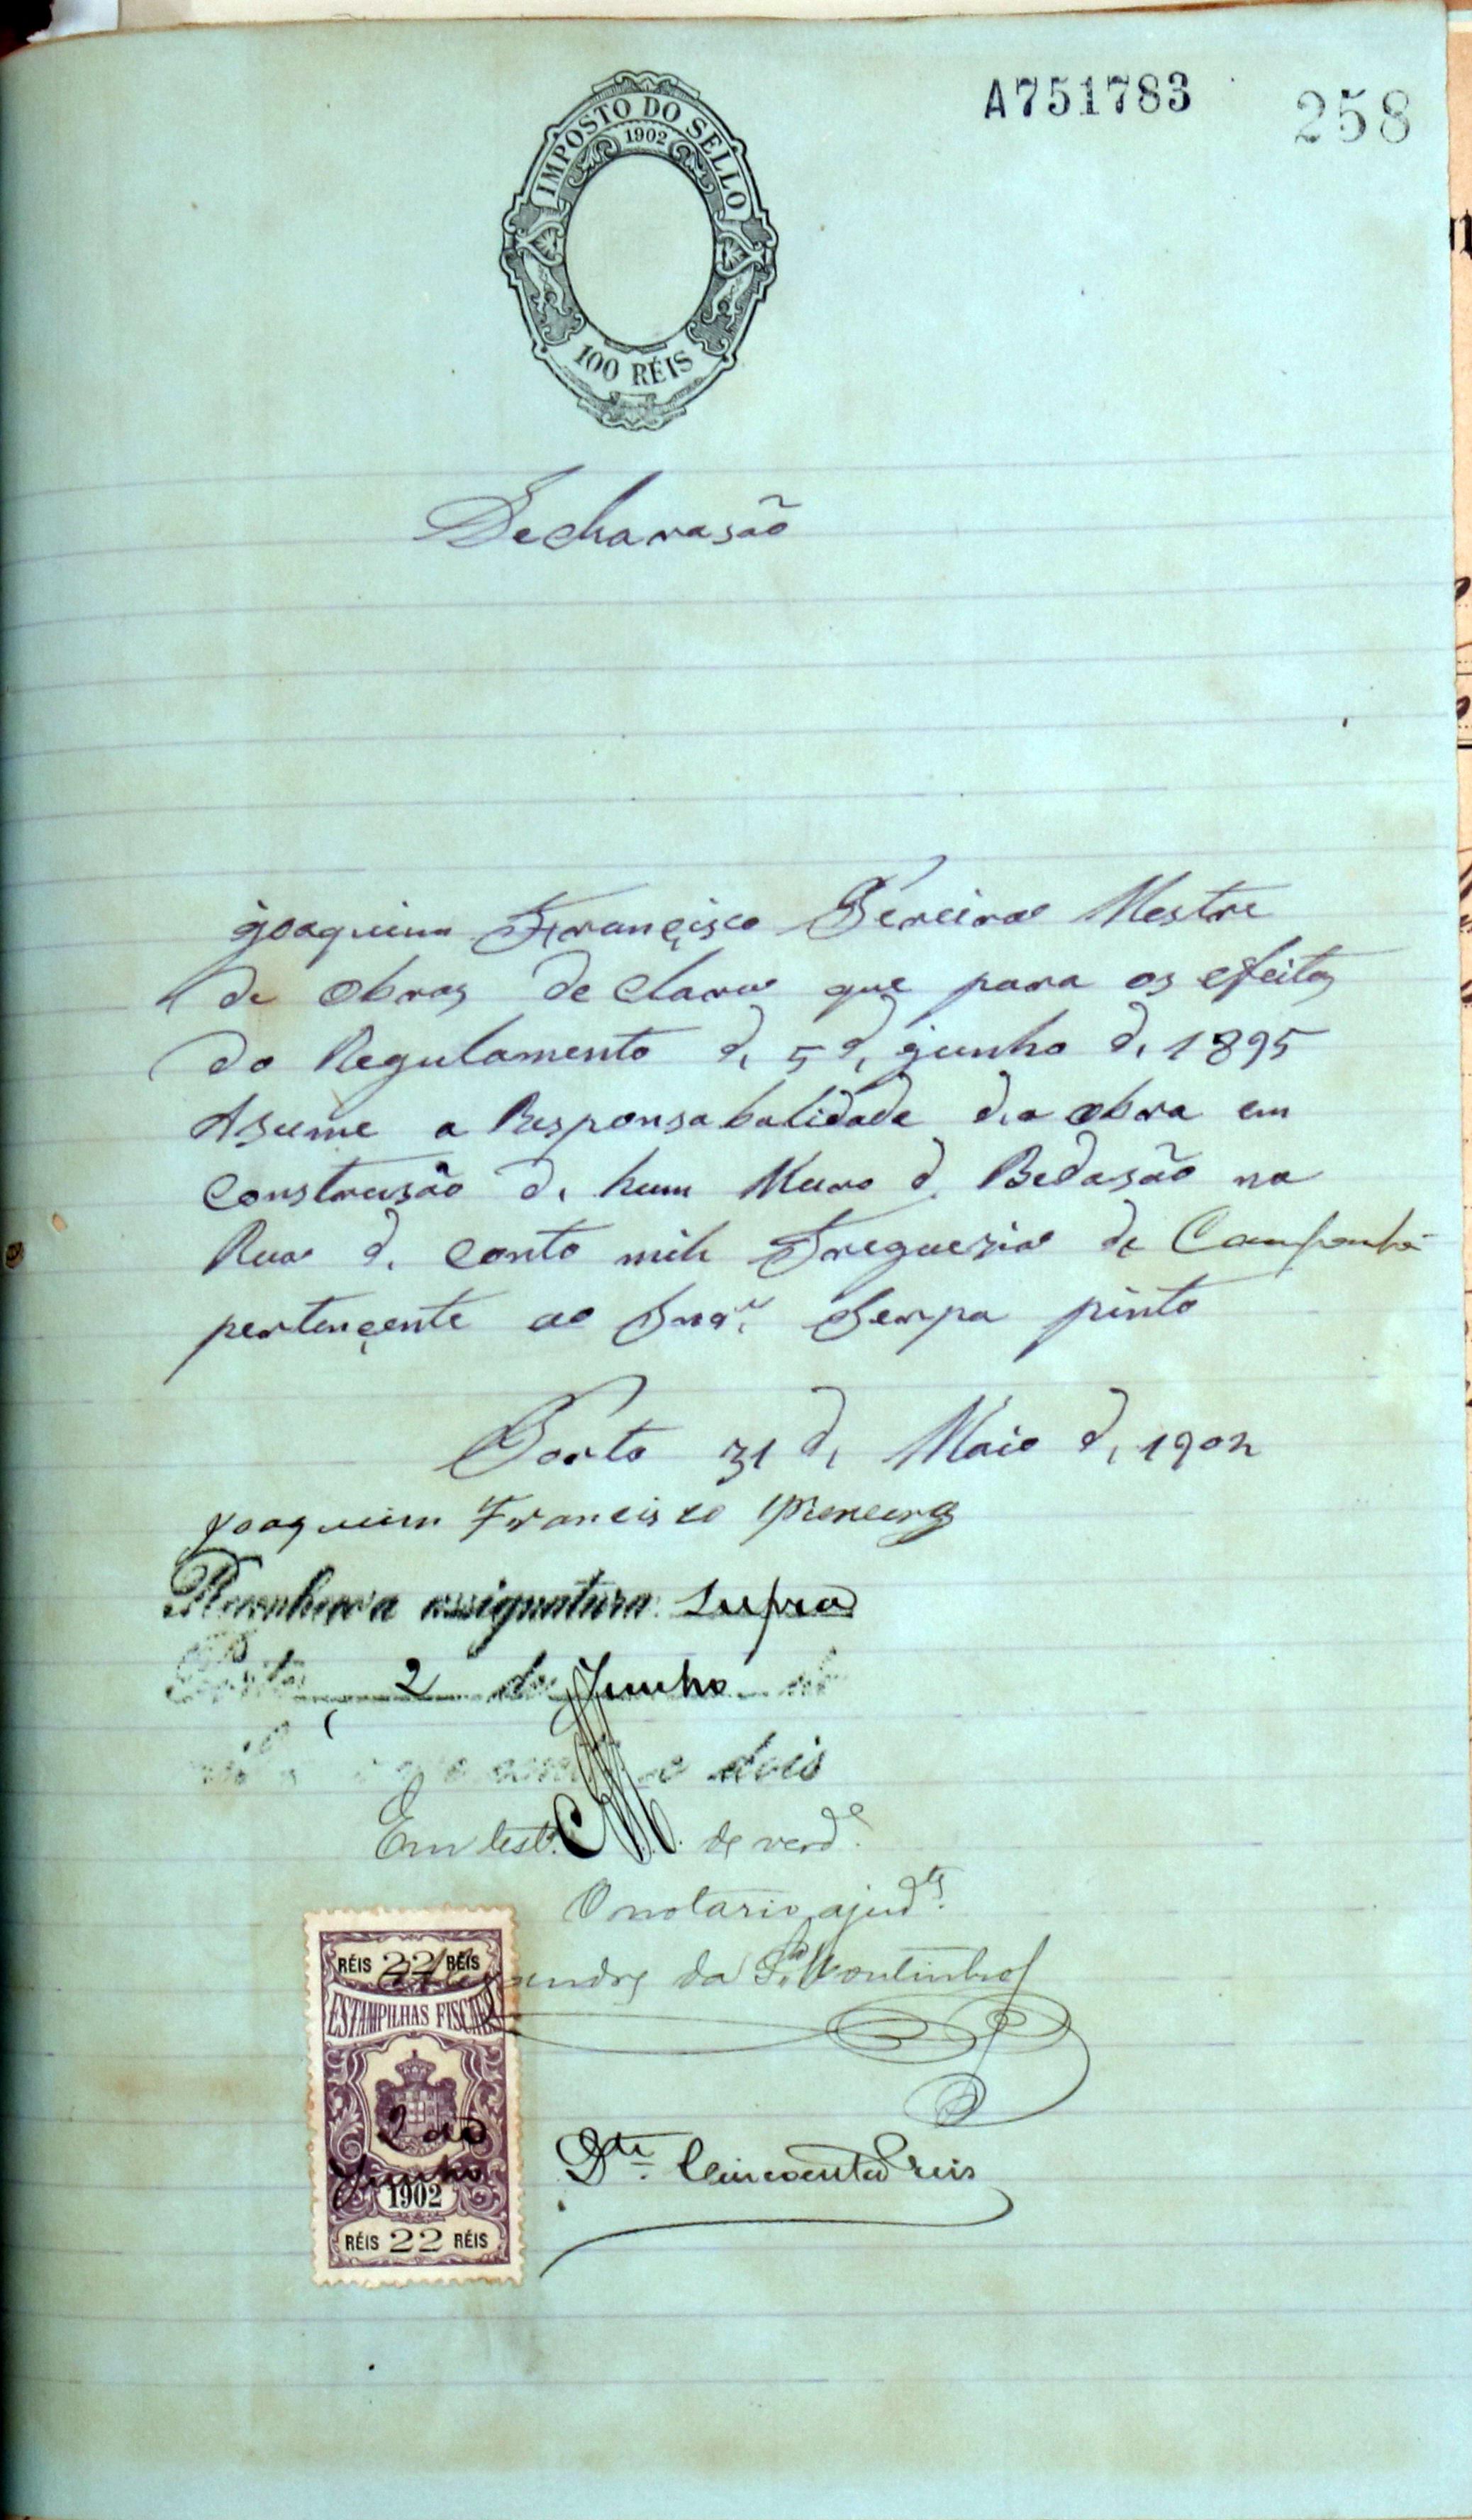 A751783
258
IMPOSTO DO SELLO
1902
100 RÉIS
Declarasão
joaquim Françisco Pereira Mestre
de obras declara que para os efeitos
do Regulamento d. 5 d. junho d. 1895
Asume a Responsabalidade d.a obra em
construsão d. hum Muro d. Bedasão na
Rua d. conto mil Freguezia de Campanhã
pertençente ao Snr. Serpa pinto
Porto 31 d. Maio d. 1902
joaquim Francisco Pereira
Reconheço a assignatura supra
Porto, 2 de Junho de
e dois
Em test.º de verd.e
O notario ajud.te
Alexandre da S.a Moutinho
RÉIS 22 RÉIS
ESTAMPILHAS FISCAES
2 de
Junho
1902
RÉIS 22 RÉIS
D.te Cincoenta reis